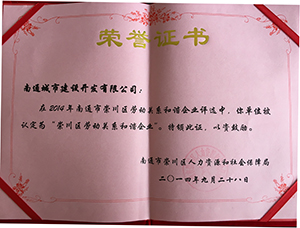 荣誉证书
南通城市建设开发有限公司：
在2014年南通市崇川区劳动关系和谐企业评选中，你单位被
认定为“崇川区劳动关系和谐企业”。特颁此证，以资鼓励。
南通市崇川区人力资源和社会保障局
二〇一四年九月二十八日